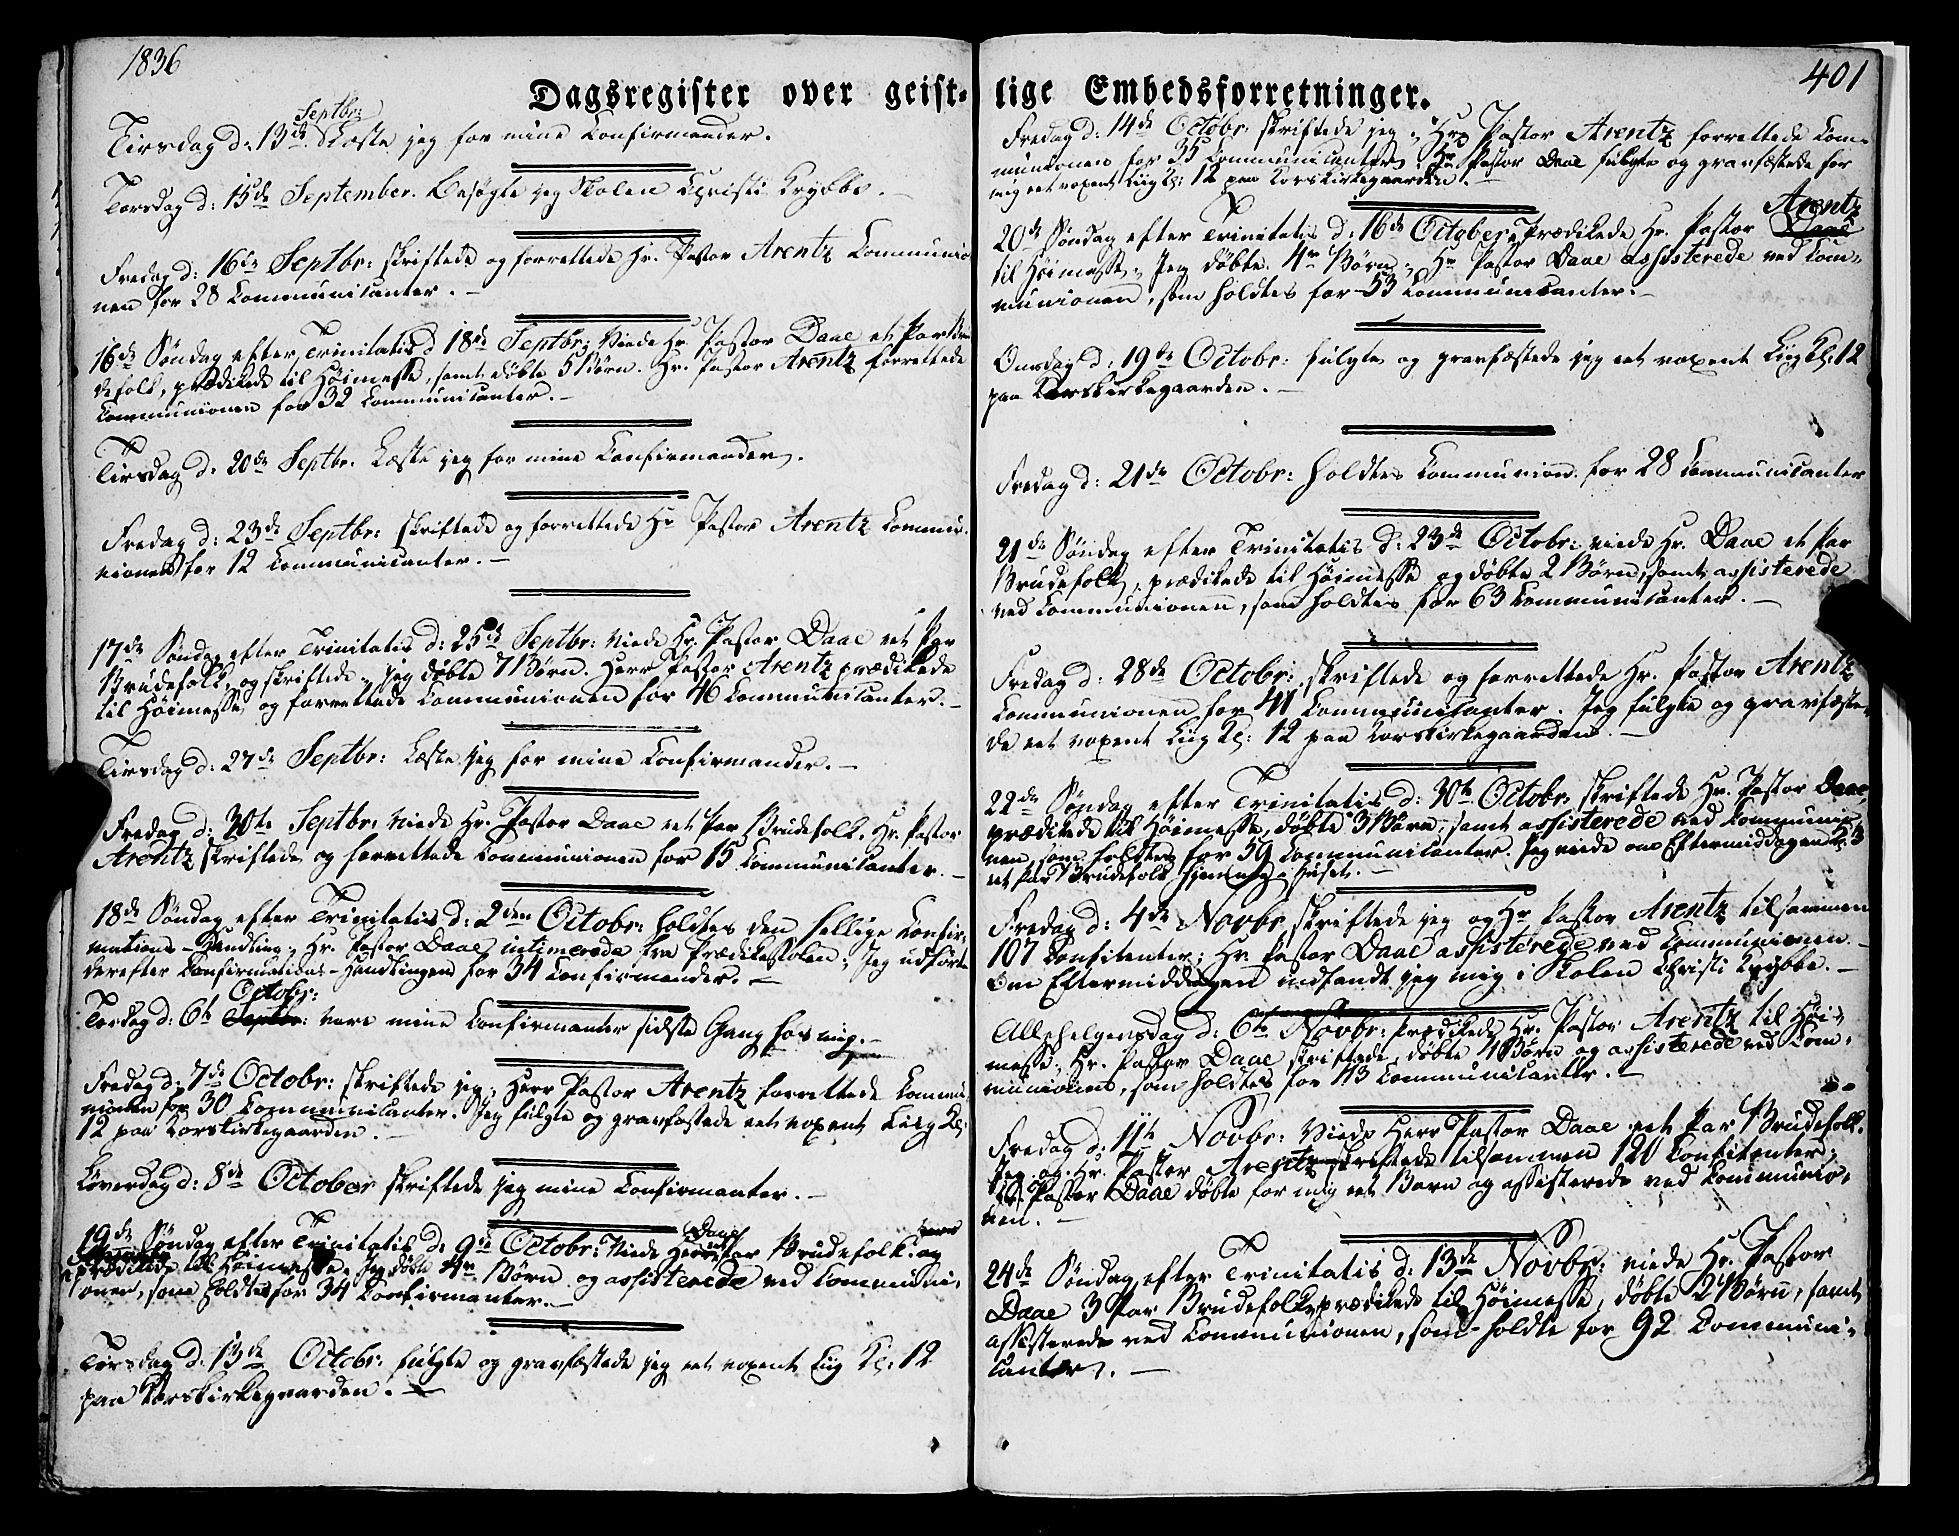 1836
Dagsregister over geist-
Septbr:
Tirsdag d: 13de Læste jeg for mine Confirmander.
Torsdag d: 15de September. Besøgte jeg Skolen Christi Krybbe. -
Fredag d: 16de Septbr: skriftede og forrettede Hr. Pastor Arentz Communio
nen for 28 Communicanter. -
16de Søndag efter Trinitatis d 18de Septbr: Viede Hr. Pastor Daae et Par Bru
defolk, prædikede til Høimesse, samt døbte 5 Børn. Hr. Pastor Arentz forrettede
Communionen for 32 Communicanter. -
Tirsdag d: 20de Septbr. Læste jeg for mine Confirmander.
Fredag d: 23de Septbr: skriftede og forrettede Hr Pastor Arentz Commu-
nionen for 12 Communicanter. -
17de Søndag efter Trinitatis d: 25de Septbr: Viede Hr. Pastor Daae eet Par
Brudefolk, og skriftede, jeg døbte 7 Børn. Herr Pastor Arentz prædikede
til Høimesse og forrettede Communionen for 46 Communicanter. -
Tirsdag d: 27de Septbr: Læste jeg for mine Confirmander. -
Fredag d: 30te Septbr: Viede Hr. Pastor Daae eet Par Brudefolk. Hr. Pastor
Arentz skriftede og forrettede Communionen for 15 Communicanter. -
18de Søndag efter Trinitatis d: 2den Octobr: holdtes den hellige Confir-
mations-Handling; Hr. Pastor Daae intimerede fra Prædikestolen; Jeg udførte
derefter Confirmations-Handlingen for 34 Confirmander. -
Octobr:
Torsdag d: 6te Septbr: vare mine Confirmanter sidste Gang hos mig. -
Fredag d: 7de Octobr: skriftede jeg; Herr Pastor Arentz forrettede Commu-
nionen for 30 Communicanter. Jeg fulgte og gravfæstede eet voxent Liig Kl:
12 paa Korskirkegaarden. -
Løverdag d: 8de October skriftede jeg mine Confirmanter. -
Daae
19de Søndag efter Trinitatis d: 9de Octobr: Viede Herr Par Brudefolk og
prædikede til Høimesse. Jeg døbte 4re Børn og assisterede ved Communi-
onen, som holdtes for 34 Confirmanter. -
Tirsdag d. 13de Octobr: fulgte og gravfæstede jeg eet voxent Liig Kl: 12
paa Korskirkegaarden. -
401
lige Embedsforretninger.
Fredag d: 14de Octobr: skriftede jeg; Hr Pastor Arentz forrettede Com-
munionen for 35 Communicanter. Hr Pastor Daae fulgte og gravfæstede for
mig eet voxent Liig Kl: 12 paa Korskirkegaarden. -
Arentz
20de Søndag efter Trinitatis d: 16de October Prædikede Hr. Pastor Daae
til Høimesse, Jeg døbte 4re Børn, Hr Pastor Daae assisterede ved Com-
munionen, som holdtes for 53 Communicanter. -
Onsdag d: 19de Octobr: fulgte og gravfæstede jeg eet voxent Liig Kl: 12
paa Korskirkegaarden. -
Fredag d: 21de Octobr: holdtes Communion for 28 Communicanter
21de Søndag efter Trinitatis d: 23de Octobr: viede Hr. Daae et Par
Brudefolk, prædikede til Høimesse og døbte 2 Børn, samt assisterede
ved Communionen, som holdtes for 63 Communicanter. -
Fredag d: 28de Octobr: skriftede og forrettede Hr. Pastor Arentz
Communionen for 41 Communicanter. Jeg fulgte og gravfæste-
de eet voxent Liig Kl: 12 paa Korskirkegaarden. -
22de Søndag efter Trinitatis d: 30te Octobr: skriftede Hr. Pastor Daae,
prædikede til Høimesse, døbte 3 Børn, samt assisterede ved Communio-
nen, som holdtes for 59 Communicanter. Jeg viede om Eftermiddagen Kl. 3
eet Par Brudefolk hjemme i Huset. -
Fredag d: 4de Novbr skriftede jeg og Hr Pastor Arentz tilsammen
107 Confitenter; Hr. Pastor Daae assisterede ved Communionen. -
Om Eftermiddagen indfandt jeg mig i Skolen Christi Krybbe. -
Allehelgensdag d: 6te Novbr: Prædikede Hr. Pastor Arentz til Høi-
messe; Hr. Pastor Daae skriftede, døbte 4 Børn og assisterede ved Com-
munionen, som holdtes for 43 Communicanter. -
Fredag d: 11te Novbr: Viede Herr Pastor Daae eet Par Brudefolk.
Jeg og Hr. Pastor Arentz skriftede tilsammen 120 Confitenter;
Hr. Pastor Daae døbte for mig eet Barn og assisterede ved Communio-
nen. -
24de Søndag efter Trinitatis d: 13de Novbr: viede Hr. Pastor
Daae 3 Par Brudefolk, prædikede til Høimesse, døbte 2 Børn, samt
assisterede ved Communionen, som holdte for 92 Communi-
canter. -